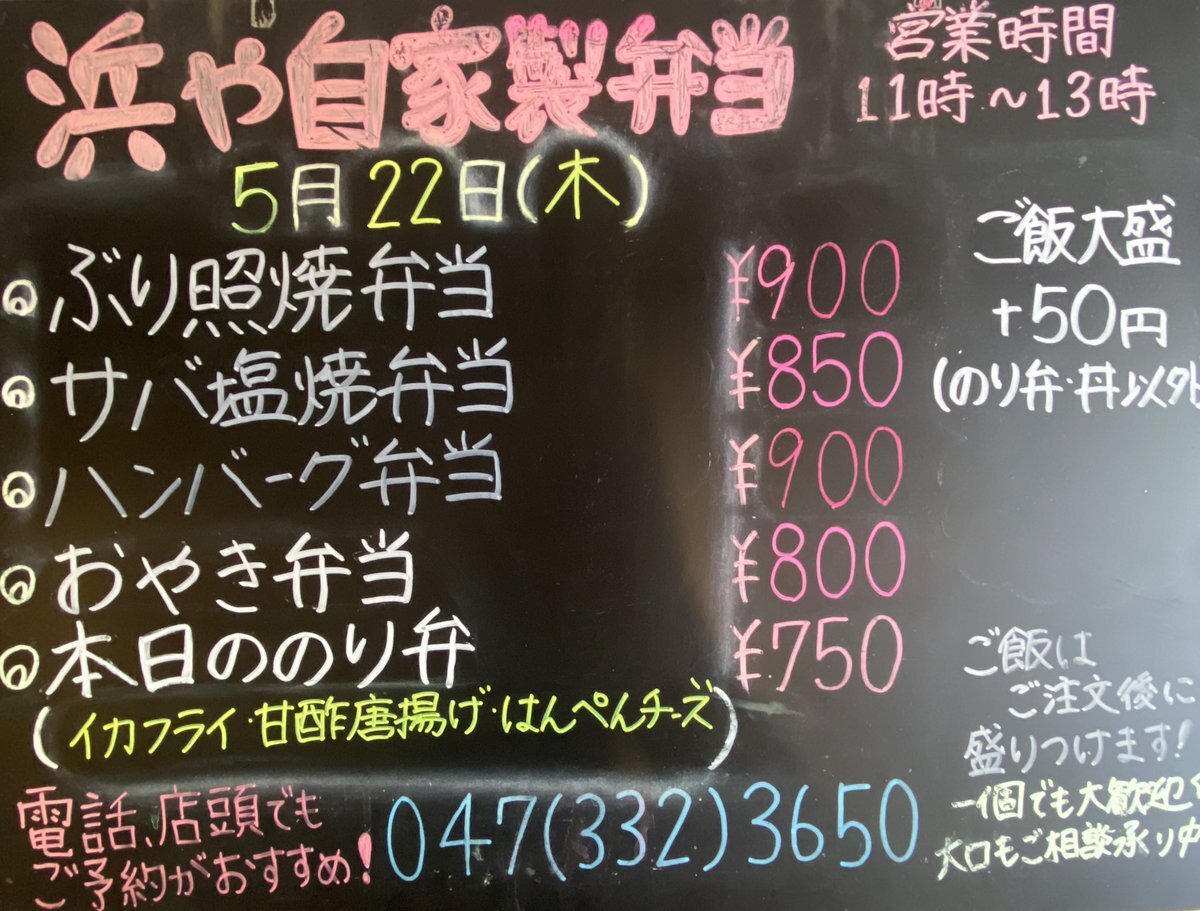 浜や自家製弁当
営業時間
11時～13時
5月22日(木)
ぶり照焼弁当 ¥900
サバ塩焼弁当 ¥850
ハンバーグ弁当 ¥900
おやき弁当 ¥800
本日ののり弁 ¥750
(イカフライ・甘酢唐揚げ・はんぺんチーズ)
ご飯大盛
+50円
(のり弁・丼以外
ご飯は
ご注文後に
盛りつけます!
一個でも大歓迎
大口もご相談承り中
電話、店頭でも
ご予約がおすすめ!
047(332)3650